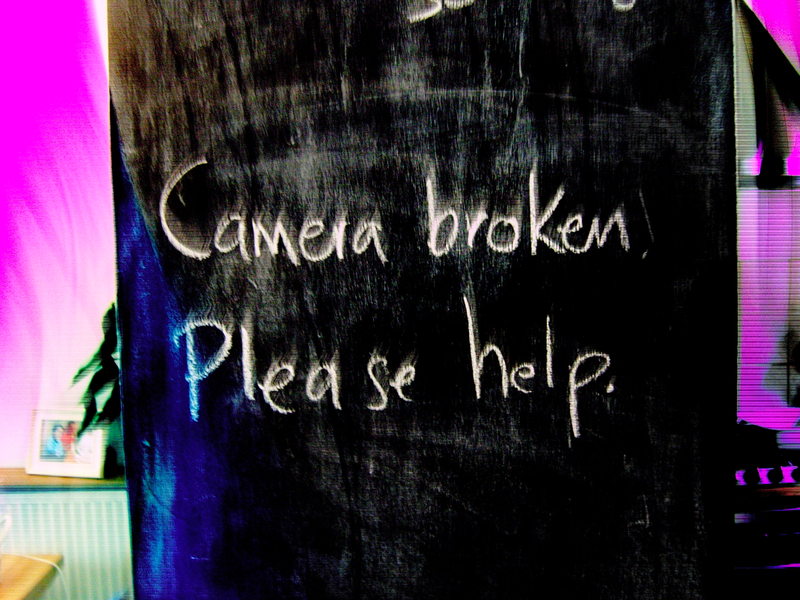 Camera broken!
Please help.